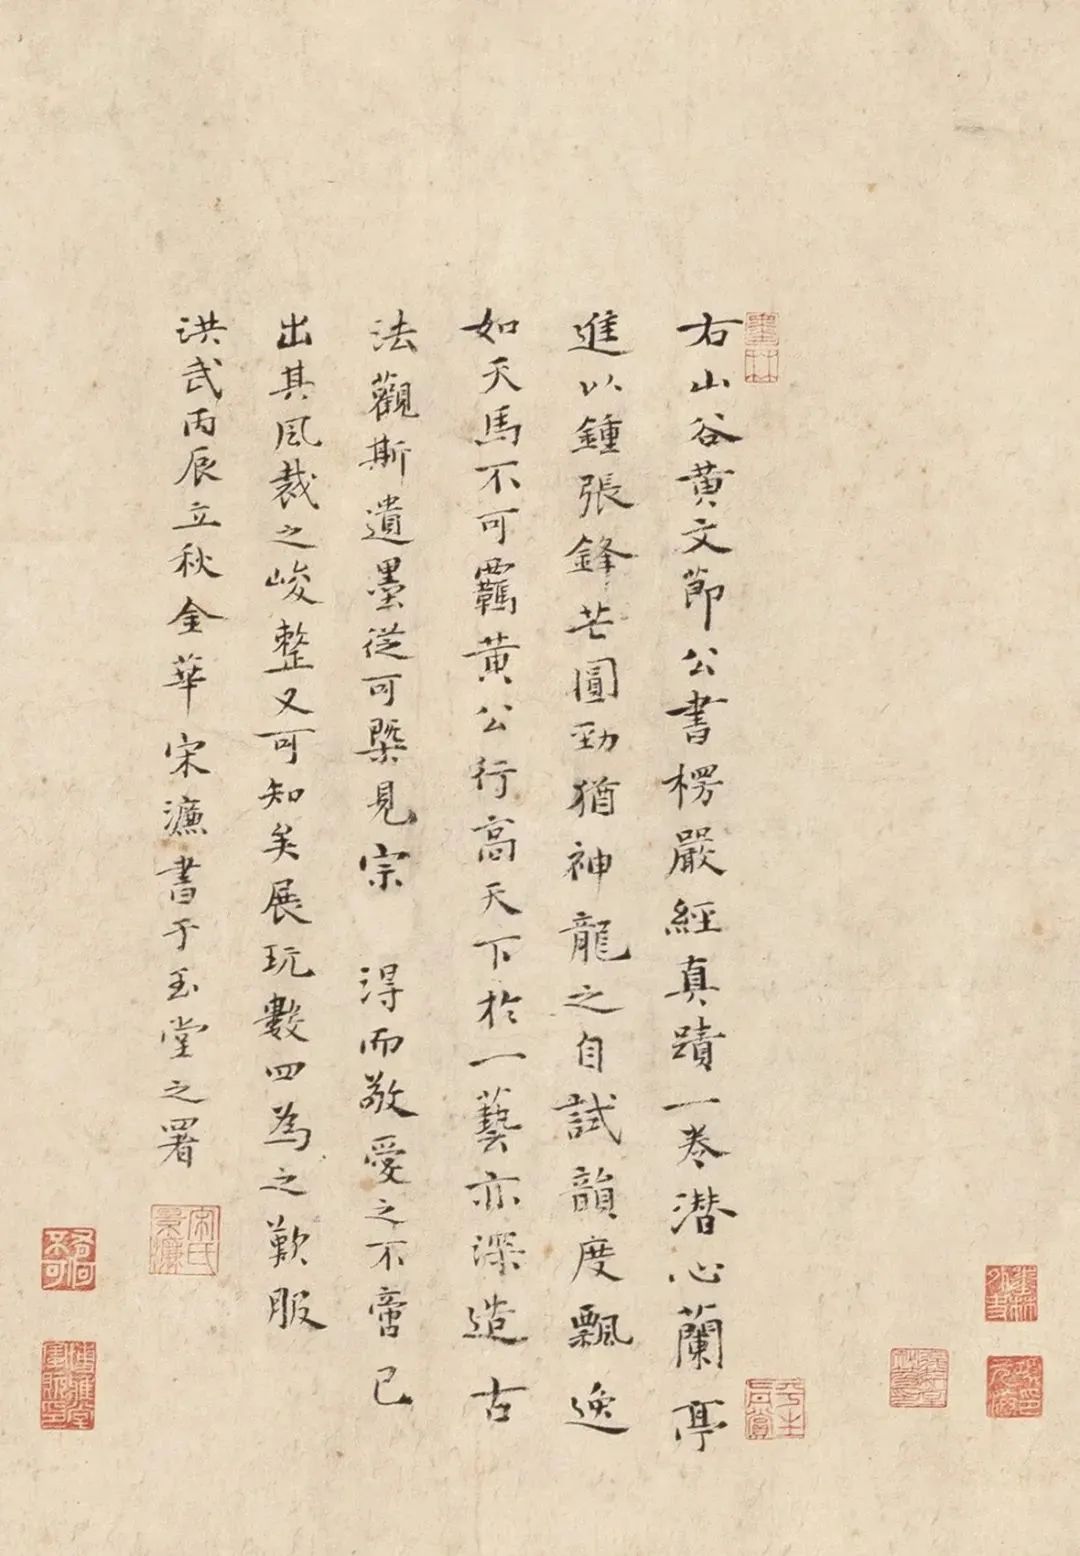 右山谷黄文節公書楞嚴經真蹟一卷潛心蘭亭
進以鍾張鋒芒圓勁猶神龍之自試韻度飄逸
如天馬不可羈黄公行高天下於一藝亦深造古
法觀斯遺墨從可槩見宗 得而敬愛之不啻己
出其風裁之峻整又可知矣展玩數四為之歎服
洪武丙辰立秋金華宋濂書于玉堂之署
宋氏景濂